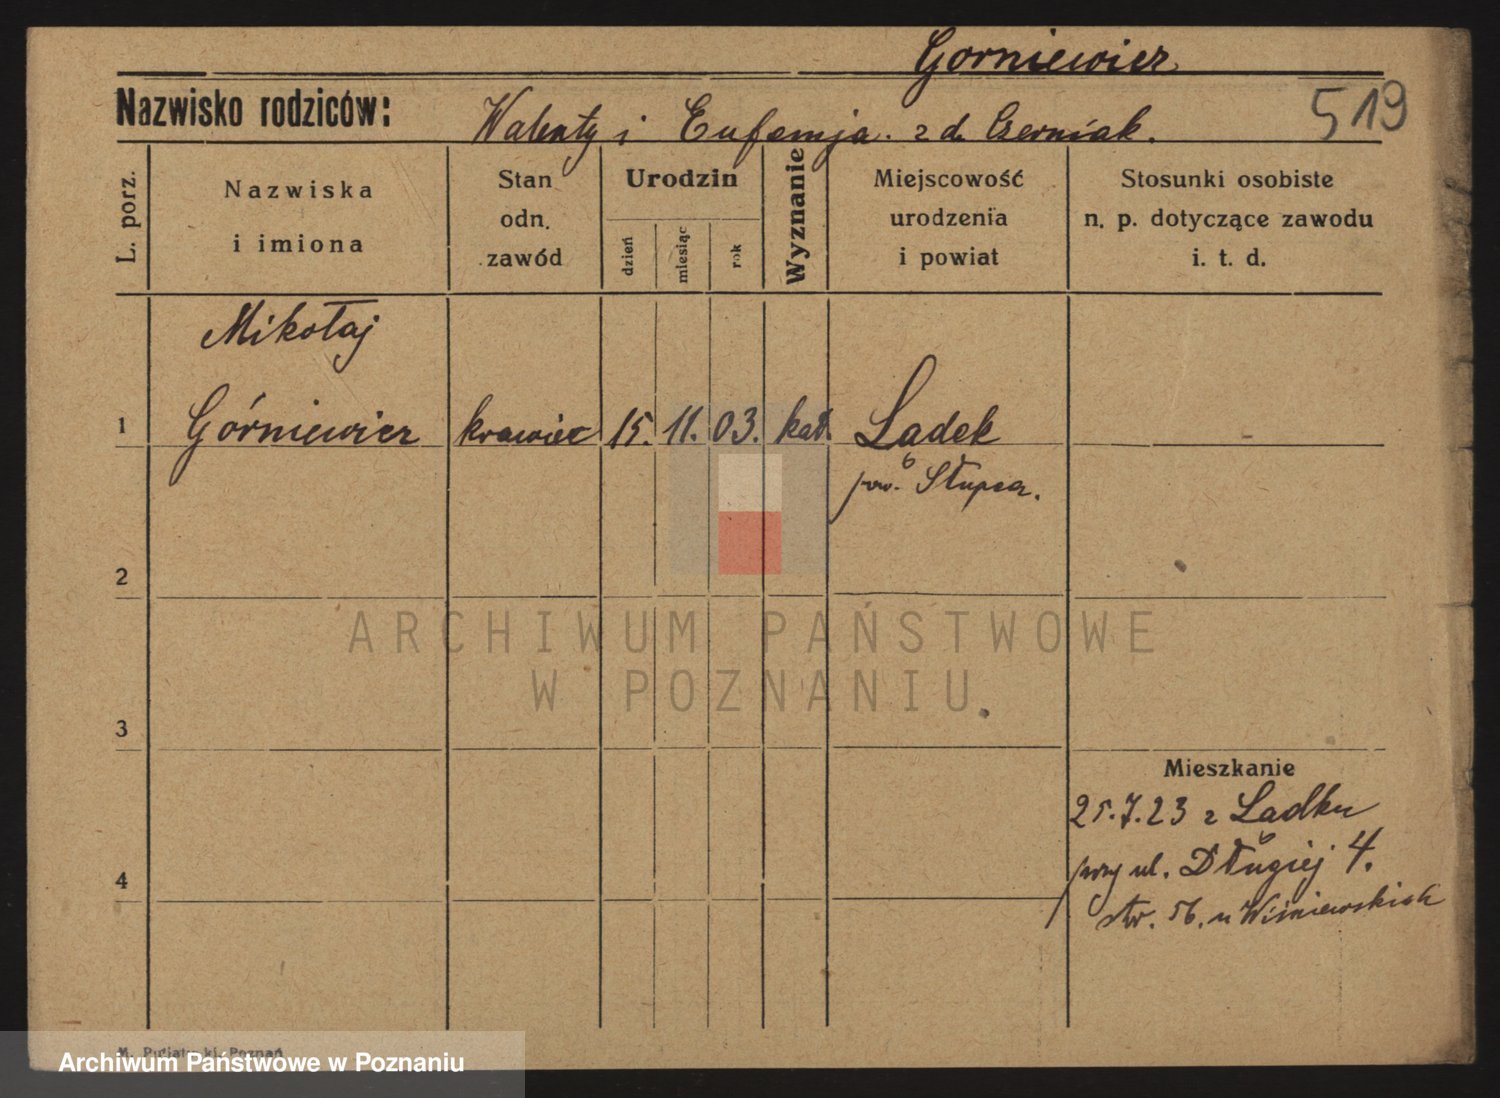 Gorniewicz
Nazwisko rodziców: Walenty i Eufemja z d. Czerniak. 519
L. porz.
Nazwiska
i imiona
Stan
odn.
zawód
Urodzin
dzień
miesiąc
rok
Wyznanie
Miejscowość
urodzenia
i powiat
Stosunki osobiste
n. p. dotyczące zawodu
i. t. d.
Mikołaj
1 Górniewicz krawiec 15. 11. 03. kat. Lądek
pow. Słupca.
2
ARCHIWUM PAŃSTWOWE
W POZNANIU
3
Mieszkanie
25.7.23 z Lądku
przy ul. Długiej 4.
4
str. 56. u Wiśniewskich
Archiwum Państwowe w Poznaniu